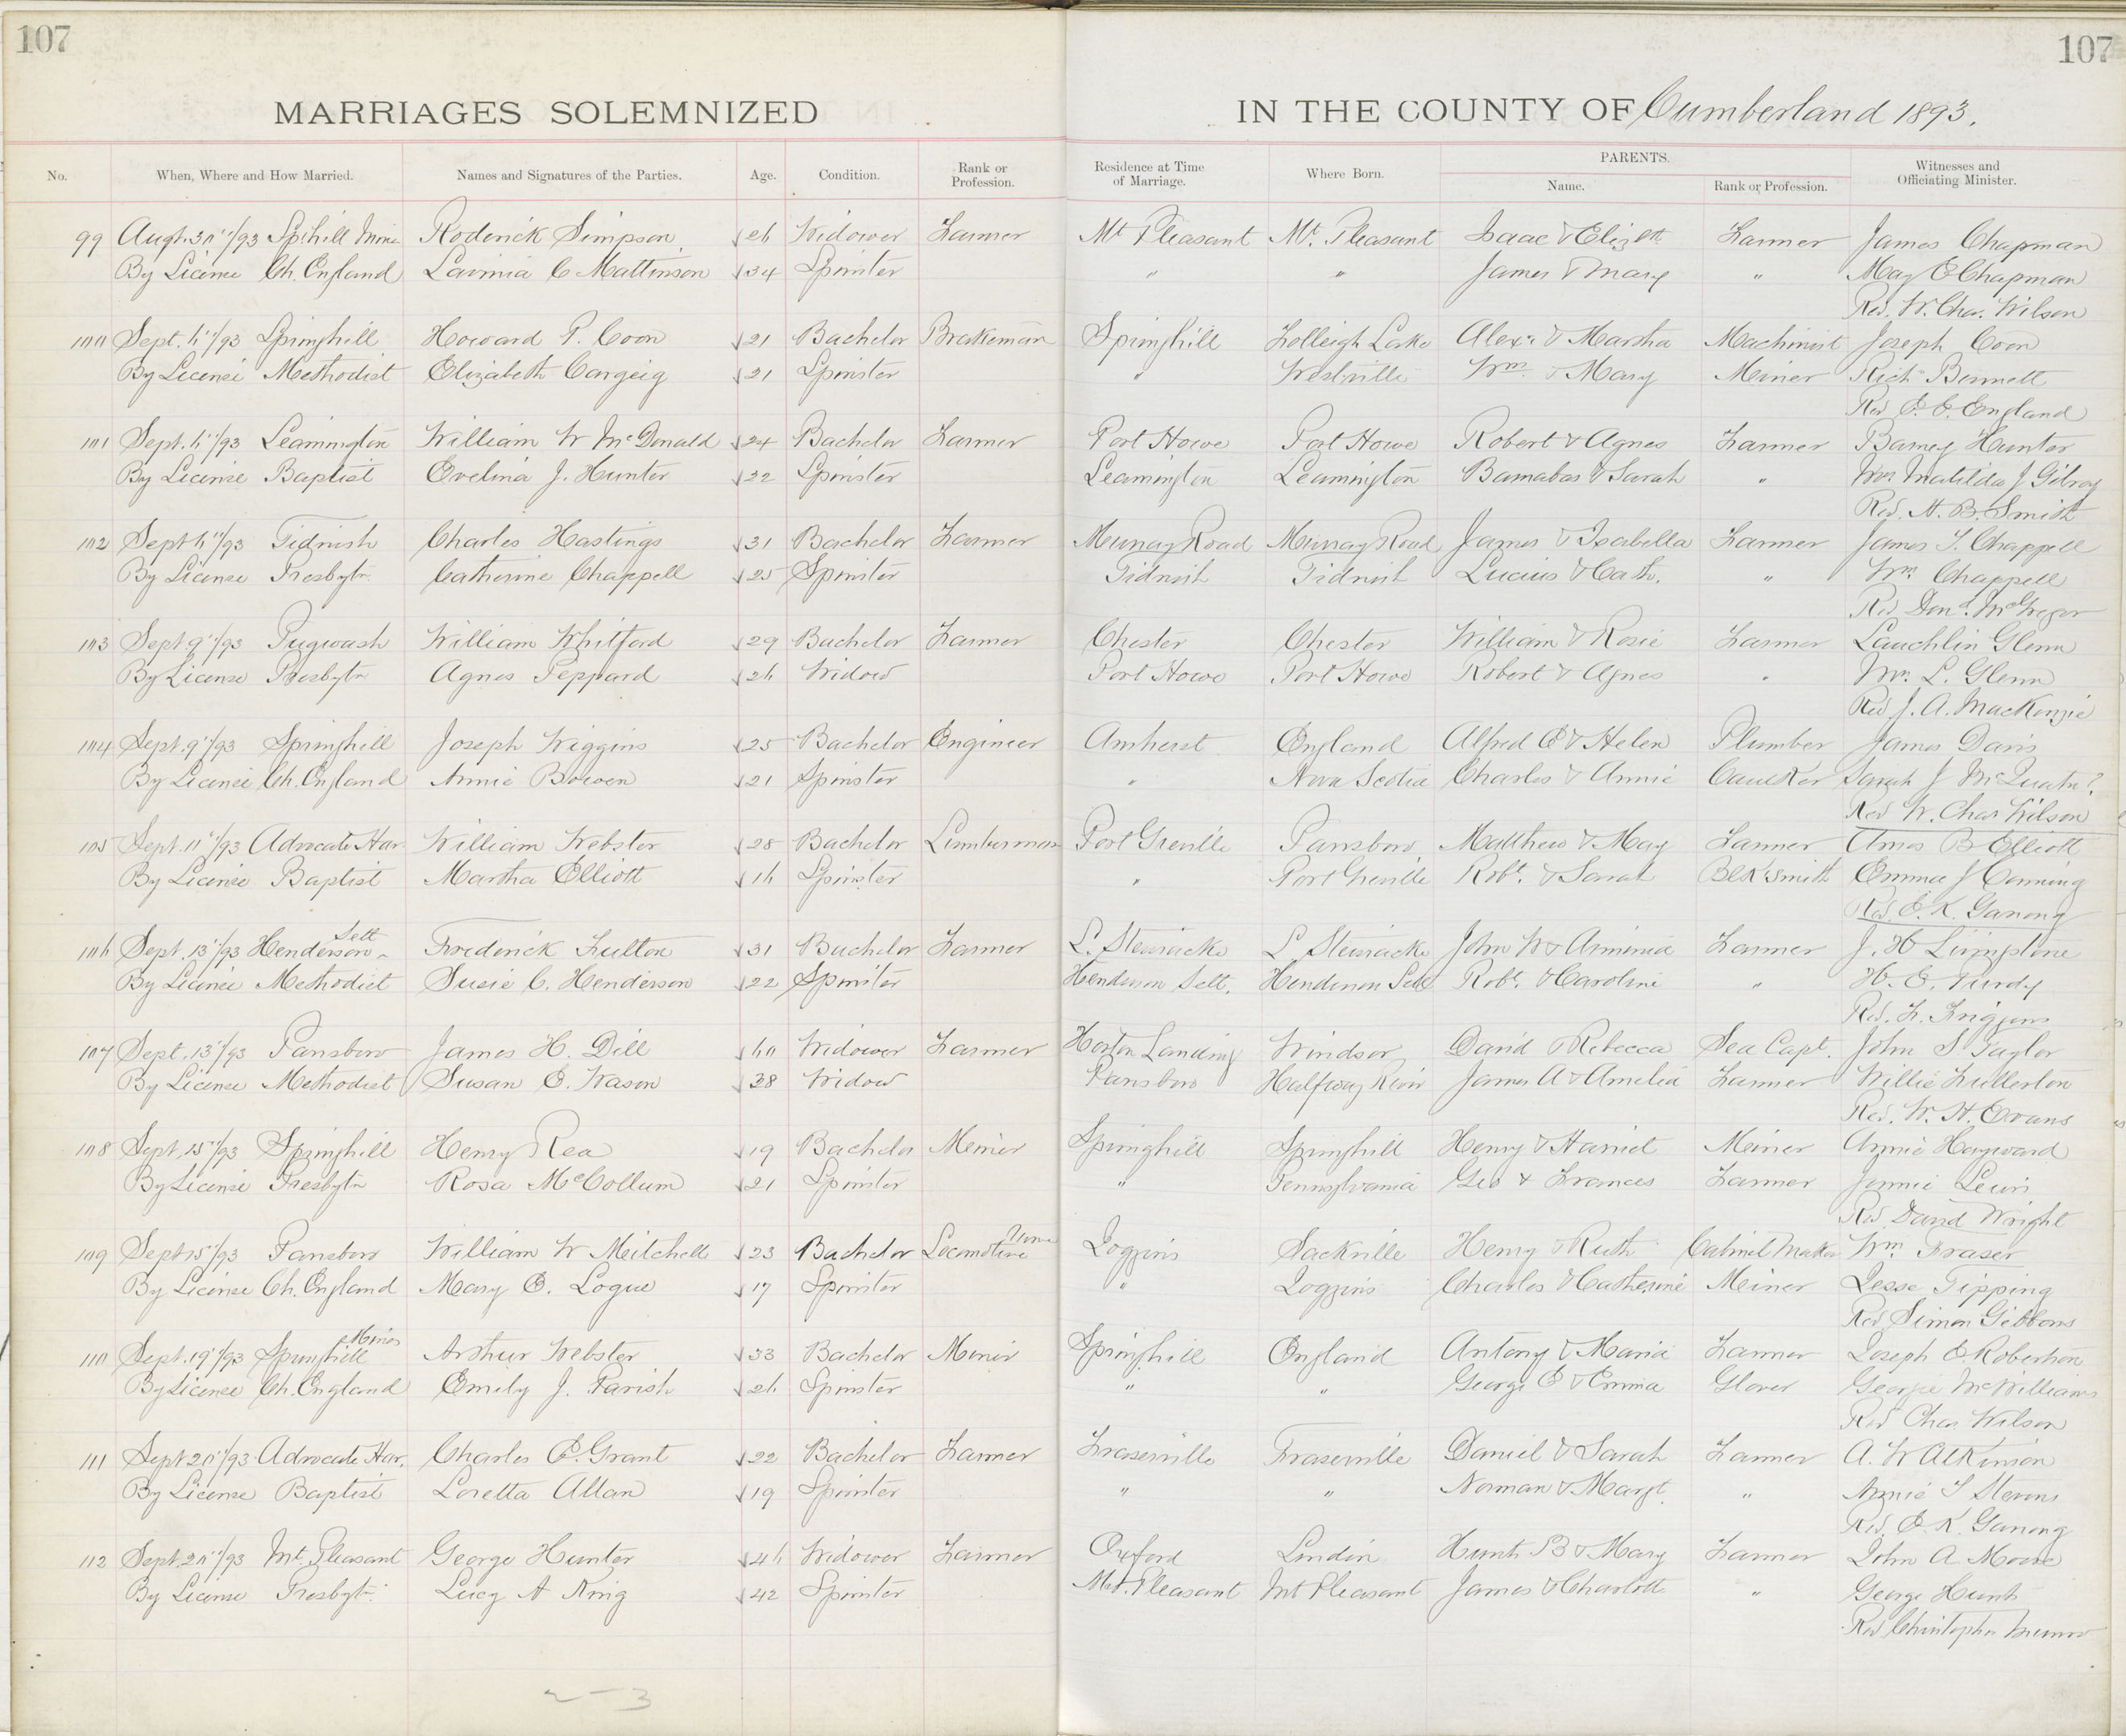 107
107
MARRIAGES SOLEMNIZED IN THE COUNTY OF Cumberland 1893.
No. When, Where and How Married. Names and Signatures of the Parties. Age. Condition. Rank or Profession. Residence at Time of Marriage. Where Born. PARENTS. Name. Rank or Profession. Witnesses and Officiating Minister.
99 Augt. 30"/93 Spihill Mine Roderick Simpson Widower Farmer Mt Pleasant Mt. Pleasant Isaac & Elizth Farmer James Chapman
By License Ch. England Lavinia C Mattinson 34 Spinster " " James & Mary " May E Chapman
Rev. W. Chas. Wilson
100 Sept. 6"/93 Springhill Howard P. Coon 21 Bachelor Brakeman Springhill Folleigh Lake Alexr. & Martha Machinist Joseph Coon
By License Methodist Elizabeth Cargeig 21 Spinster " Westville Wm. & Mary Miner Richd Bennett
Rev E. E. England
101 Sept. 6"/93 Leamington William W McDonald 24 Bachelor Farmer Port Howe Port Howe Robert & Agnes Farmer Barney Hunter
By License Baptist Evelina J. Hunter 22 Spinster Leamington Leamington Barnabas & Sarah " Mrs Matilda J Gilroy
Rev. H. B. Smith
102 Sept 6"/93 Tidnish Charles Hastings 31 Bachelor Farmer Murray Road Murray Road James & Isabella Farmer James T. Chappell
By License Presbytn. Catherine Chappell 25 Spinster Tidnish Tidnish Lucius & Cath. " Wm. Chappell
Rev. Dond. McGregor
103 Sept. 9"/93 Pugwash William Whitford 29 Bachelor Farmer Chester Chester William & Rosie Farmer Lauchlin Glenn
By License Presbytn Agnes Peppard 26 Widow Port Howe Port Howe Robert & Agnes " Mrs. L. Glenn
Rev J. A. MacKenzie
104 Sept. 9"/93 Springhill Joseph Wiggins 25 Bachelor Engineer Amherst England Alfred E & Helen Plumber James Davis
By License Ch. England Annie Bowen 21 Spinster " Nova Scotia Charles & Annie Caulker Sarah J
Rev W. Chas Wilson
105 Sept. 11"/93 Advocate Har William Webster 28 Bachelor Lumberman Port Greville Parrsboro Matthew & May Farmer Amos B Elliott
By License Baptist Martha Elliott 16 Spinster " Port Greville Robt. & Sarah BlkSmith Emma J Canning
Rev. E. K. Ganong
106 Sept. 13"/93 Henderson Sett Frederick Fulton 31 Bachelor Farmer L. Stewiacke L Stewiacke John W & Armenia Farmer J. H Livingstone
By License Methodist Susie C. Henderson 22 Spinster Henderson Sett. Henderson Sett Robt. & Caroline " H. E. Purdy
Rev. F. Friggens
107 Sept. 13"/93 Parrsboro James H. Dill 60 Widower Farmer Horton Landing Windsor David & Rebecca Sea Capt. John S Taylor
By License Methodist Susan E. Wason 38 Widow Parrsboro Halfway River James A & Amelia Farmer Willie Fullerton
Rev. W. H. Evans
108 Sept. 15"/93 Springhill Henry Rea 19 Bachelor Meiner Springhill Springhill Henry & Harriet Meiner Annie Hayward
By License Presbytn Rosa McCollum 21 Spinster " Pennsylvania Geo & Frances Farmer Jennie Lewis
Rev. David Wright
109 Sept 15"/93 Parrsboro William W Meitchell 23 Bachelor Locomotive Joggins Sackville Henry & Ruth Cabinet Maker Wm. Fraser
By License Ch. England Mary E. Logue 17 Spinster " Joggins Charles & Catherine Meiner Jesse Tipping
Rev Simon Gibbons
110 Sept. 19"/93 Springhill Mines Arthur Webster 33 Bachelor Miner Springhill England Antony & Maria Farmer Joseph E Robertson
By License Ch. England Emily J. Parish 26 Spinster " " George E & Emma Glover Georgie McWilliams
Rev Chas Wilson
111 Sept 20"/93 Advocate Har. Charles E. Grant 22 Bachelor Farmer Fraserville Fraserville Daniel & Sarah Farmer A. W Atkinson
By License Baptist Loretta Allan 19 Spinster " " Norman & Margt. " Annie S Stevens
Rev. E. K. Ganong
112 Sept. 20"/93 Mt. Pleasant George Hunter 46 Widower Farmer Oxford Linden B & Mary Farmer John A. Moore
By License Presbytn. Lucy A King 42 Spinster Mt. Pleasant Mt Pleasant James & Charlott " George Hunt
Rev Christopher Munro
2 - 3